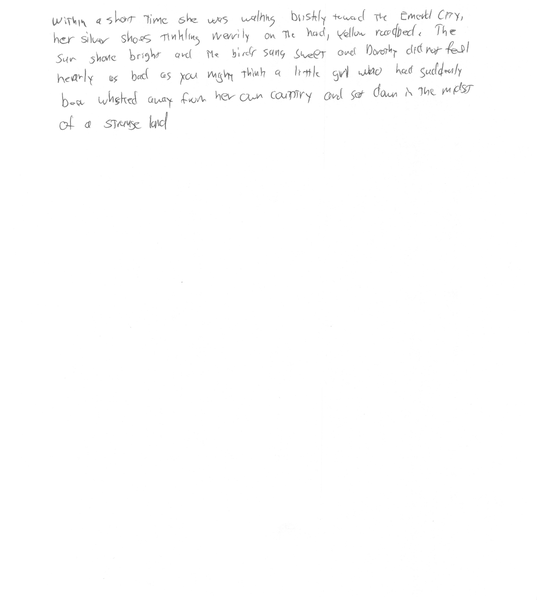 Within a short time she was walking briskly toward the Emerald City,
her silver shoes tinkling merrily on the hard, yellow roadbed. The
sun shone bright and the birds sang sweet and Dorothy did not feel
nearly as bad as you might think a little girl who had suddenly
been whisked away from her own country and set down in the midst
of a strange land